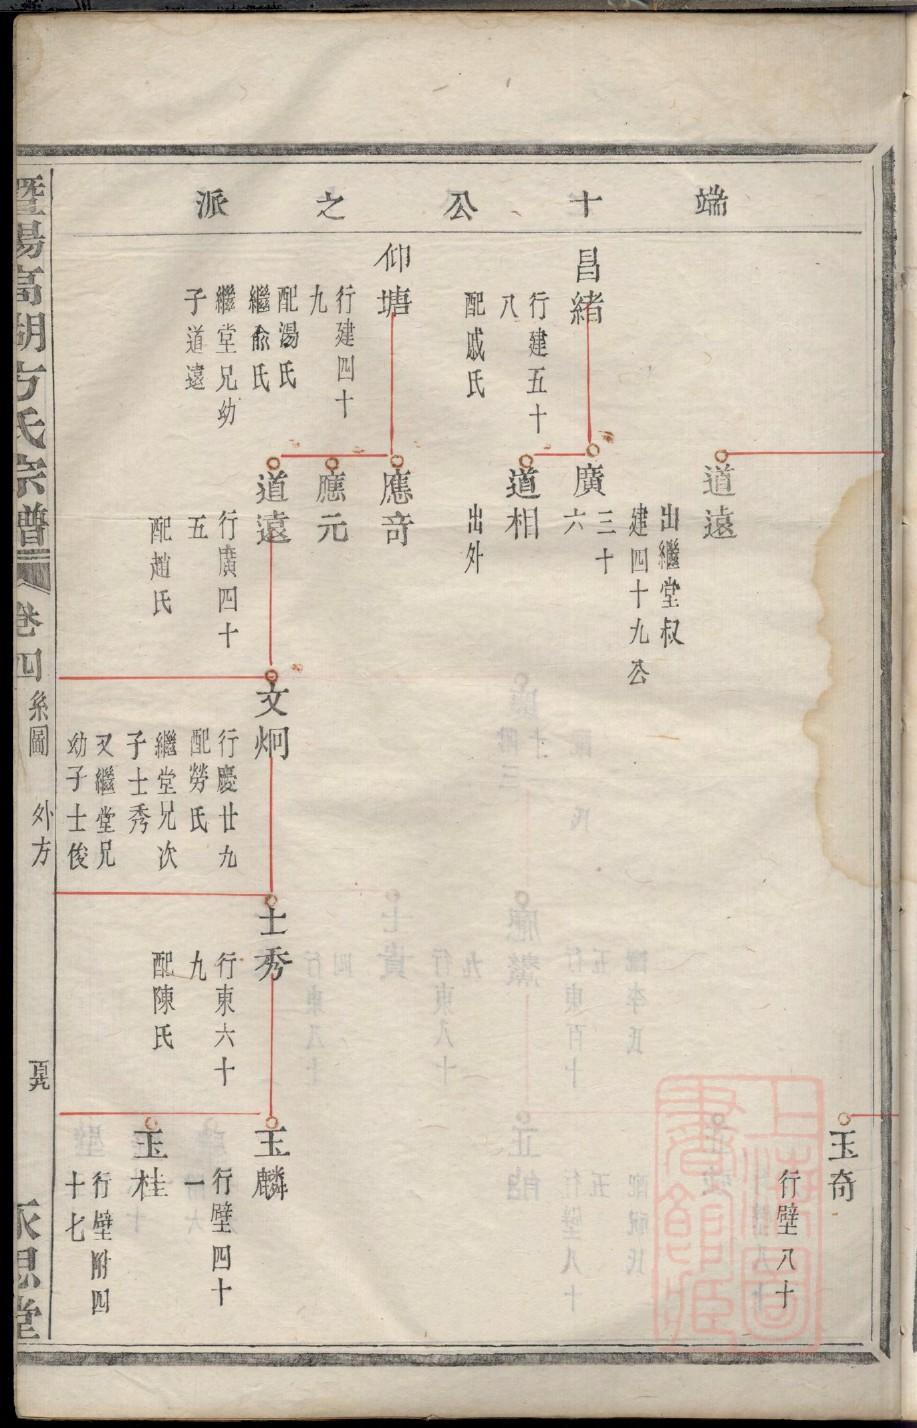 端十公之派
道遠
出繼堂叔
建四十九公
玉奇
行壁八十
昌緒
行建五十
八
配戚氏
廣
三十
六
道相
出外
仰塘
行建四十
九
配湯氏
繼兪氏
繼堂兄幼
子道遠
應奇
應元
道遠
行廣四十
五
配趙氏
文炯
行慶廿九
配勞氏
繼堂兄次
子士秀
又繼堂兄
幼子士俊
士秀
行東六十
九
配陳氏
玉麟
行壁四十
一
玉桂
行壁附四
十七
暨陽高湖方氏宗譜
卷四
系圖
外方
永思堂
上海圖書館藏